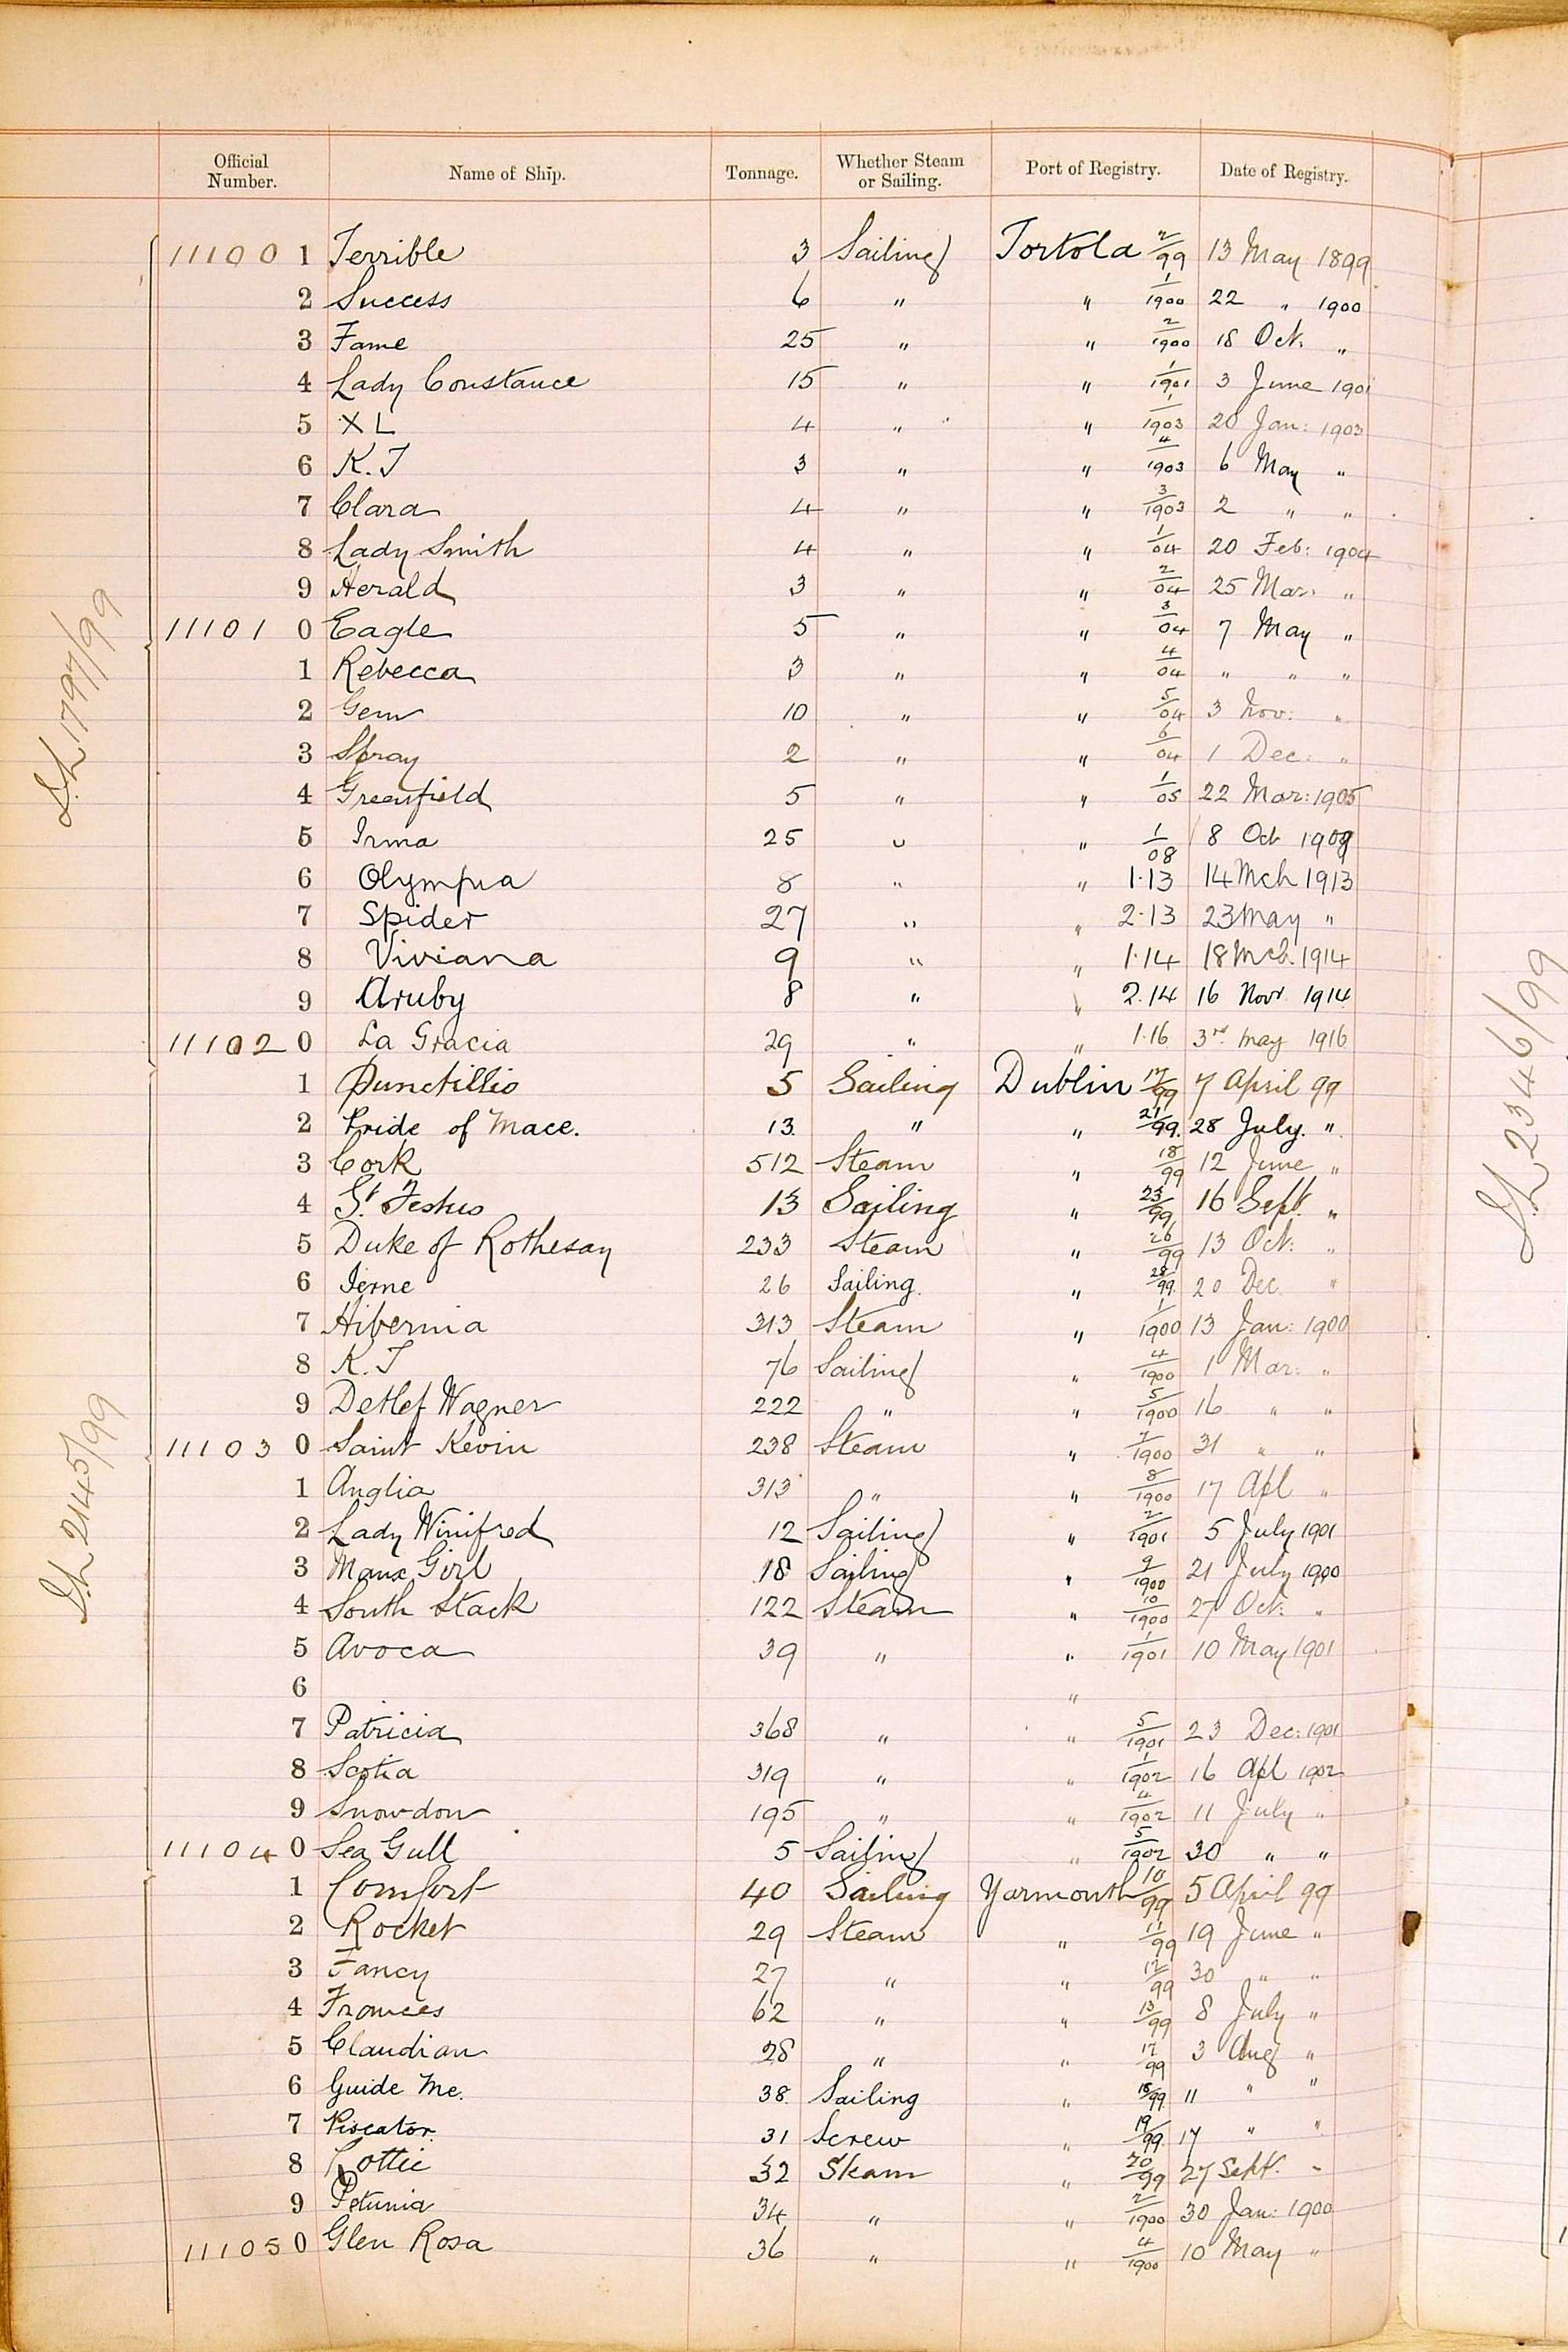 Official Number. Name of Ship. Tonnage. Whether Steam or Sailing. Port of Registry. Date of Registry.
11100 1 Terrible 3 Sailing Tortola 2/99 13 May 1899
2 Success 6 " " 1/1900 22 " 1900
3 Fame 25 " " 2/1900 18 Oct. "
4 Lady Constance 15 " " 1/1901 3 June 1901
5 XL 4 " " 1/1903 20 Jan: 1903
6 K.T 3 " " 4/1903 6 May "
7 Clara 4 " " 3/1903 2 " "
8 Lady Smith 4 " " 1/04 20 Feb: 1904
9 Herald 3 " " 2/04 25 Mar: "
11101 0 Eagle 5 " " 3/04 7 May "
1 Rebecca 3 " " 4/04 " " "
2 Gem 10 " " 5/04 3 Nov: "
3 Spray 2 " " 6/04 1 Dec: "
4 Greenfield 5 " " 1/05 22 Mar: 1905
5 Irma 25 " " 1/08 8 Oct
6 Olympia 8 " " 1.13 14 Mch 1913
7 Spider 27 " " 2.13 23 May "
8 Viviana 9 " " 1.14 18 Mch. 1914
9 Aruby 8 " " 2.14 16 Novr 1914
11102 0 La Gracia 29 " " 1.16 3rd. May 1916
1 Punctillio 5 Sailing Dublin 17/99 7 April 99
2 Pride of Mace. 13. " " 21/99. 28 July. ".
3 Cork 512 Steam " 18/99 12 June "
4 St. 13 Sailing " 23/99 16 Sept. "
5 Duke of Rothesay 233 Steam " 26/99 13 Oct: "
6 Ierne 26 Sailing. " 28/99. 20 Dec "
7 Hibernia 313 Steam " 1/1900 13 Jan: 1900
8 K.T 76 Sailing " 4/1900 1 Mar: "
9 Detlef Wagner 222 " " 5/1900 16 " "
11103 0 Saint Kevin 238 Steam " 7/1900 31 " "
1 Anglia 313 " " 8/1900 17 Apl "
2 Lady Winifred 12 Sailing " 2/1901 5 July 1901
3 Manx Girl 18 Sailing " 9/1900 21 July 1900
4 South Stack 122 Steam " 10/1900 27 Oct: "
5 Avoca 39 " " 1/1901 10 May 1901
6 "
7 Patricia 368 " " 5/1901 23 Dec: 1901
8 Scotia 319 " " 1/1902 16 Apl 1902
9 Snowdon 195 " " 4/1902 11 July "
11104 0 Sea Gull 5 Sailing " 5/1902 30 " "
1 Comfort 40 Sailing Yarmouth 10/99 5 April 99
2 Rocket 29 Steam " 11/99 19 June "
3 Fancy 27 " " 12/99 30 " "
4 Frances 62 " " 13/99 8 July "
5 Claudian 28 " " 17/99 3 Aug "
6 Guide Me. 38. Sailing " 18/99. 11 " "
7 Piscator. 31 Screw " 19/99. 17 " "
8 Lottie 32 Steam " 20/99 27 Sept. "
9 Petunia 34 " " 2/1900 30 Jan: 1900
11105 0 Glen Rosa 36 " " 4/1900 10 May "
1797/99
2145/99
2346/99